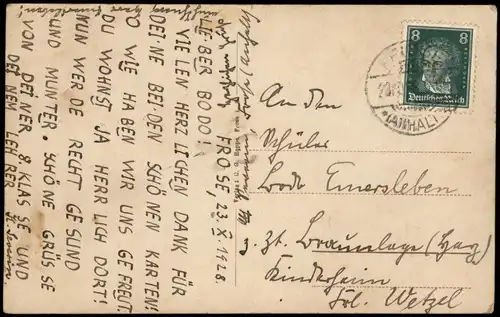 FROSE, 23. X. 1928.
LIEBER BODO!
VIELEN HERZLICHEN DANK FÜR
DEINE BEIDEN SCHÖNEN KARTEN!
O WIE HABEN WIR UNS GEFREUT.
DU WOHNST JA HERRLICH DORT!
NUN WERDE RECHT GESUND
UND MUNTER. SCHÖNE GRÜSSE
VON DEINER 8. KLASSE UND
DEINEM LEHRER
8 8
Deutsches Reich
(ANHALT)
An den
Schüler
Bodo Emersleben
z. Zt. Braunlage (Harz)
Kinderheim
Frl. Wetzel